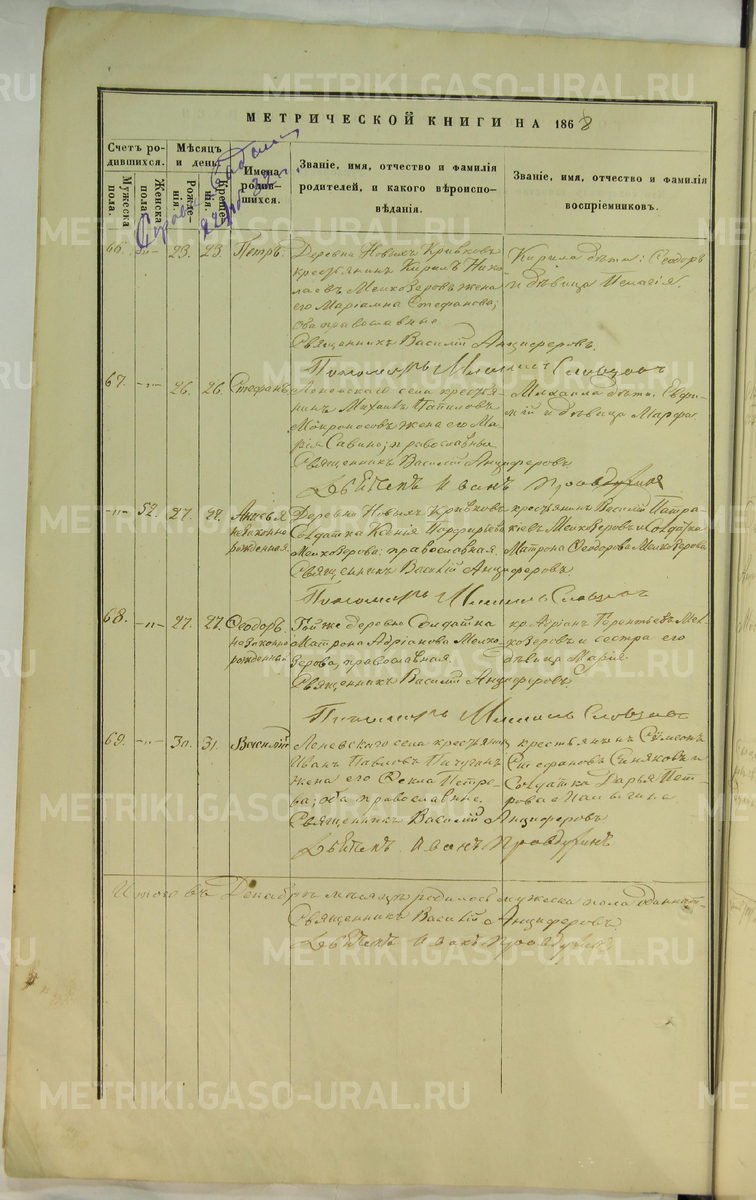 МЕТРИЧЕСКОЙ КНИГИ НА 1868
Счетъ родившихся.
Мужеска пола.
Женска пола.
Мѣсяцъ и день.
Рожденія.
Крещенія.
Имена родившихся.
Званіе, имя, отчество и фамилія
родителей, и какого вѣроиспо-
вѣданія.
Званіе, имя, отчество и фамилія
воспріемниковъ.
66. -"- 23. 23. Петръ.
Деревни Новыхъ Кривковъ
крестьянинъ Кирилъ Нико
лаевъ Мелкозеровъ жена
его Маріамна Стефанова;
оба православные
Священникъ Василій Анциферовъ.
Пономарь Слобцовъ
Кирила дѣти: Ѳеодоръ
и дѣвица Пелагія.
67. -"- 26. 26. Стефанъ
села крестья
нинъ Михаилъ
Мокроносовъ жена его Ма
рія Савина; православны
Священникъ Василій Анциферовъ
Иванъ
Михаила дѣти: Евфи
мій и дѣвица Марфа.
-"- 52. 27. 27.
незаконно
рожденная
Деревни Новыхъ Кривковъ
Солдатка Ксенія Порфирьева
Мелкозерова; православная.
Священникъ Василій Анциферовъ
Пономарь Слобцовъ
крестьянинъ Василій Патра
кіевъ Мелкозеровъ и солдатка
Матрона Ѳеодорова Мелкозерова
68. -"- 27. 27. Ѳеодоръ
незаконно
рожденный
Той же деревни Солдатка
Матрона Адріанова Мелко
зерова, православная.
Священникъ Василій Анциферовъ
Пономарь Слобцовъ
кр. Адріанъ Терентьевъ Мел
козеровъ и сестра его
дѣвица Марія.
69. -"- 30. 31. Василій
Леневскаго села крестьянинъ
Иванъ Павловъ Пичугинъ
жена его Ѳекла Петро
ва; оба православные.
Священникъ Василій Анциферовъ
Иванъ
крестьянинъ Сѵмеонъ
Стефановъ Синяковъ и
Солдатка Дарья Пет
рова
Итого въ Декабрѣ мѣсяцѣ родилось мужеска пола
Священникъ Василій Анциферовъ
Иванъ
METRIKI.GASO-URAL.RU